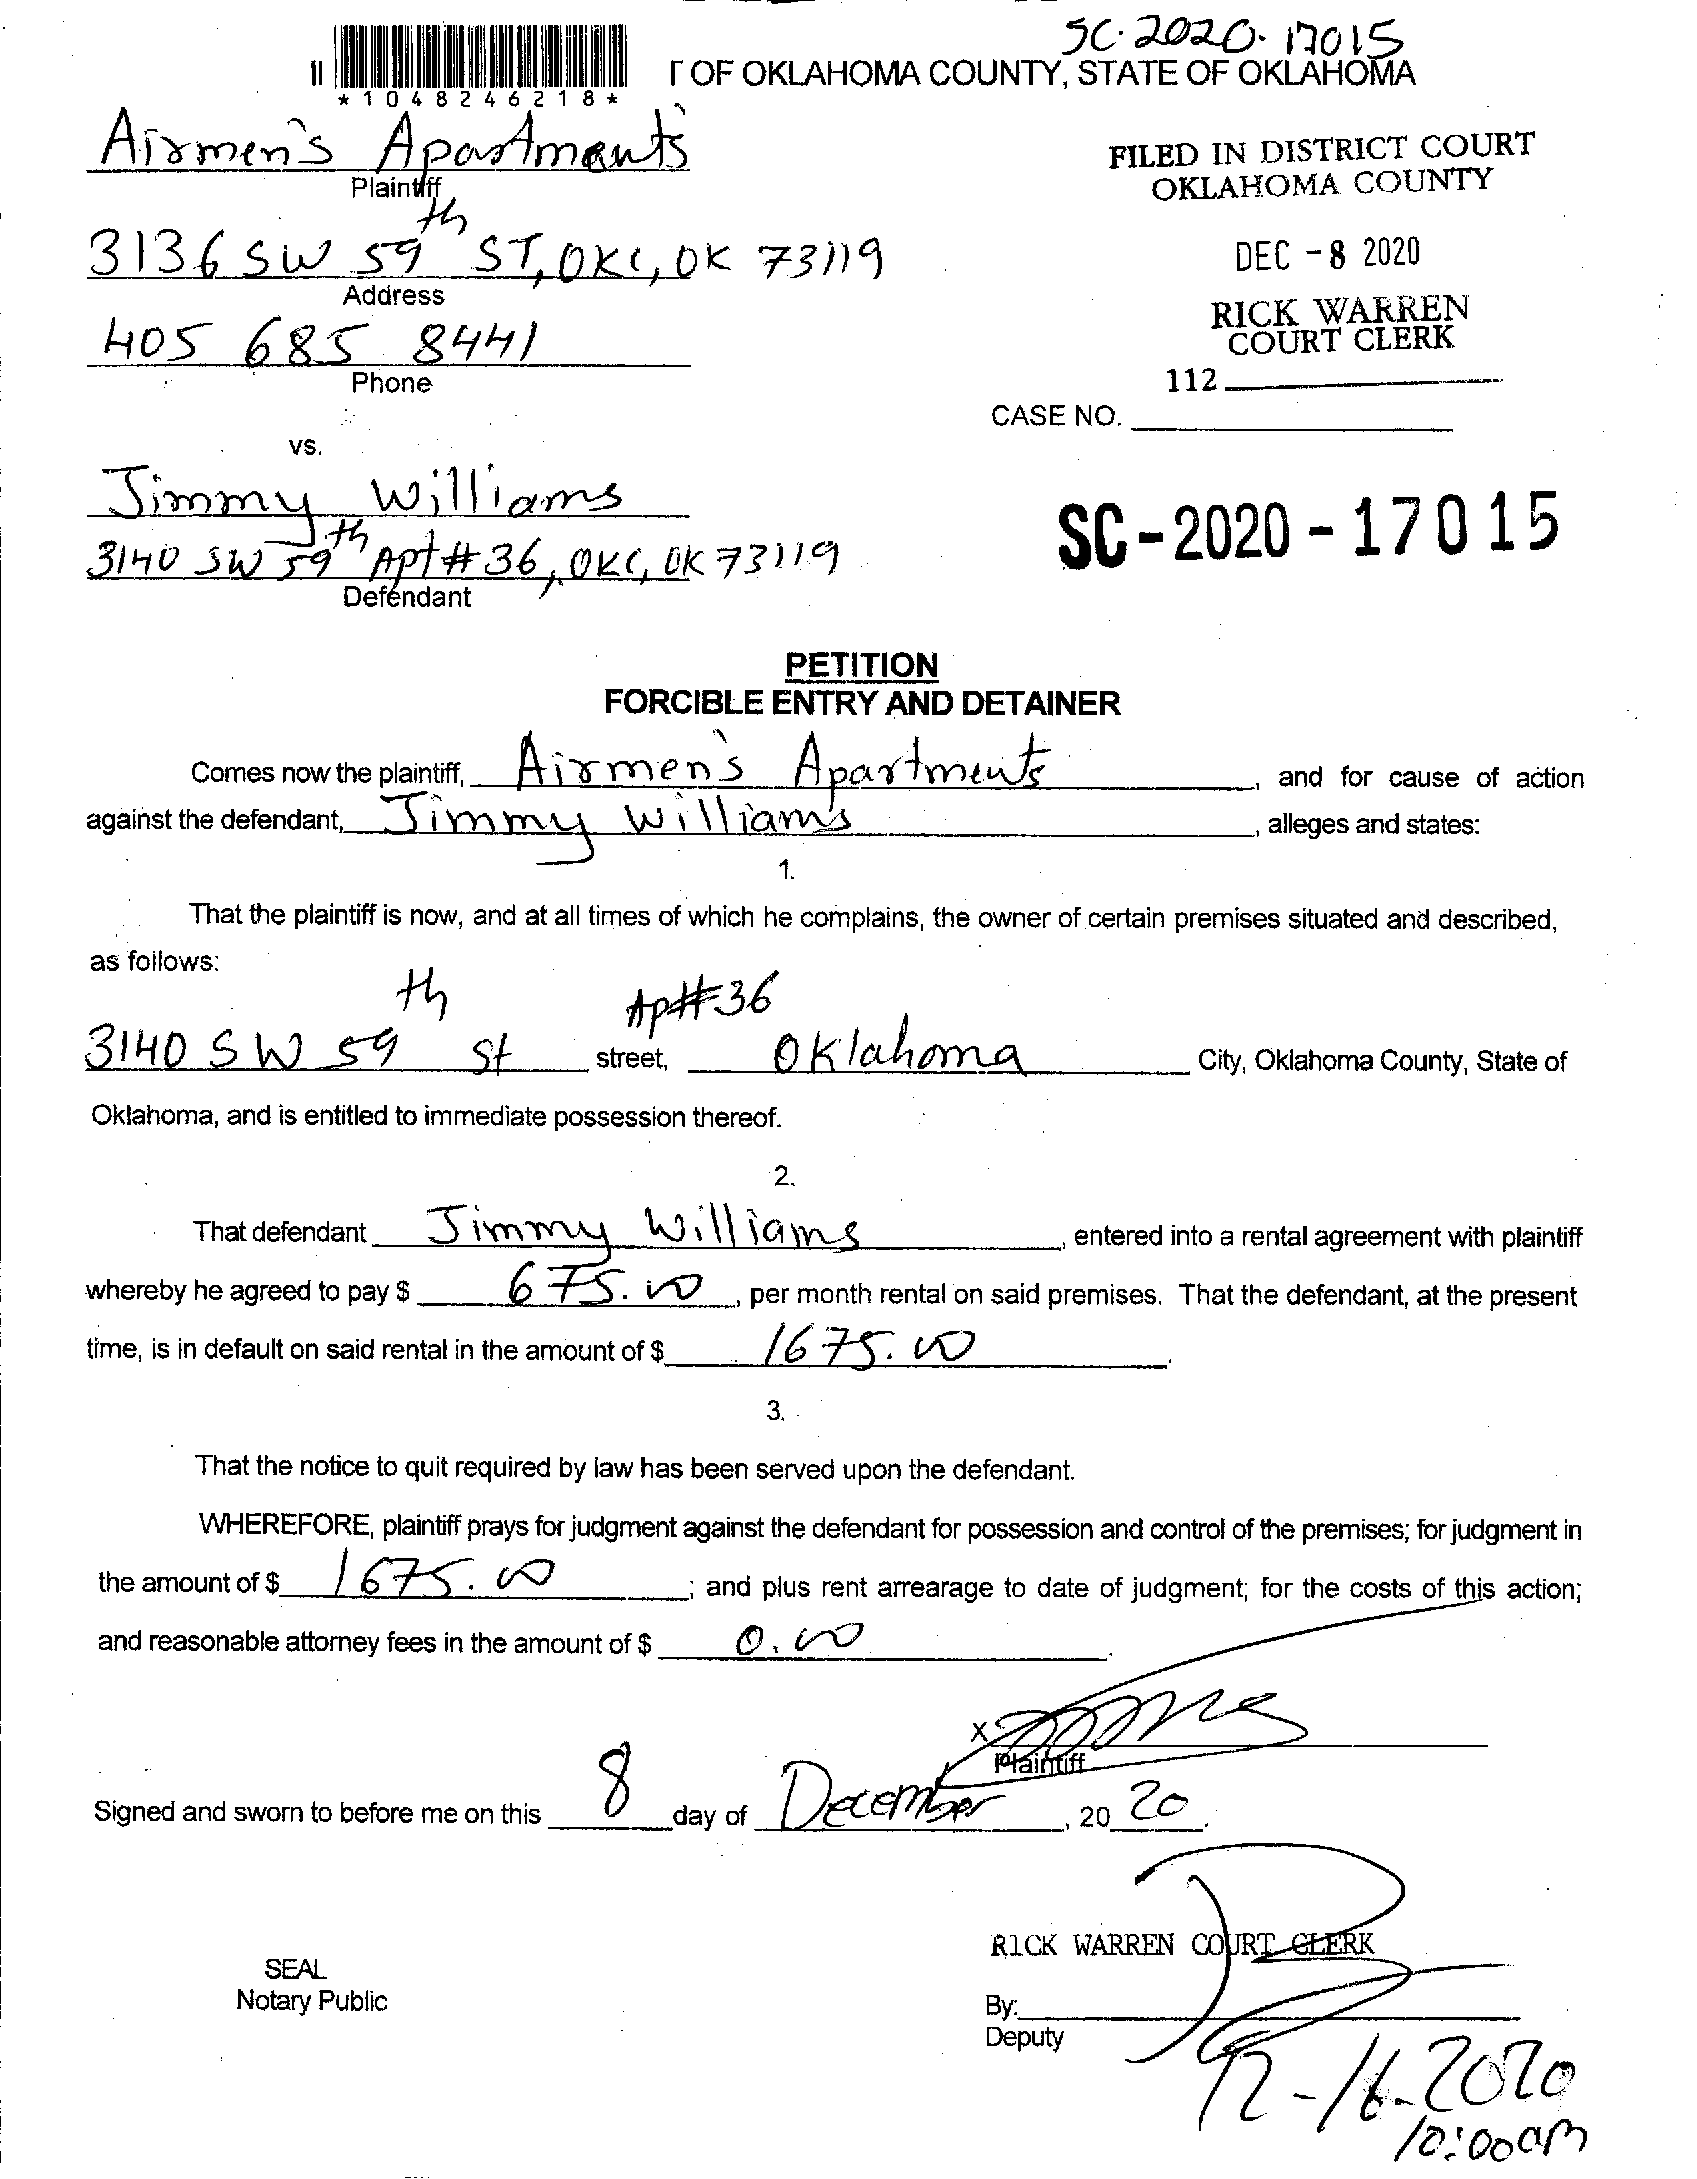 SC-2020-17015
T OF OKLAHOMA COUNTY, STATE OF OKLAHOMA
*1048246218*
Airmen's Apartments
Plaintiff
3136 SW 59th ST, OKC, OK 73119
Address
405 685 8441
Phone
FILED IN DISTRICT COURT
OKLAHOMA COUNTY
DEC -8 2020
RICK WARREN
COURT CLERK
112
CASE NO.
vs.
Jimmy Williams
3140 SW 59th Apt # 36, OKC, OK 73119
Defendant
SC-2020-17015
PETITION
FORCIBLE ENTRY AND DETAINER
Comes now the plaintiff, Airmen's Apartments, and for cause of action
against the defendant, Jimmy Williams, alleges and states:
1.
That the plaintiff is now, and at all times of which he complains, the owner of certain premises situated and described,
as follows:
3140 SW 59th St street, Apt#36 Oklahoma City, Oklahoma County, State of
Oklahoma, and is entitled to immediate possession thereof.
2.
That defendant Jimmy Williams, entered into a rental agreement with plaintiff
whereby he agreed to pay $ 675.00, per month rental on said premises. That the defendant, at the present
time, is in default on said rental in the amount of $ 1675.00.
3.
That the notice to quit required by law has been served upon the defendant.
WHEREFORE, plaintiff prays for judgment against the defendant for possession and control of the premises; for judgment in
the amount of $ 1675.00; and plus rent arrearage to date of judgment; for the costs of this action;
and reasonable attorney fees in the amount of $ 0.00.
X
Plaintiff
Signed and sworn to before me on this 8 day of December, 20 20.
RICK WARREN COURT CLERK
SEAL
Notary Public
By:
Deputy
12-16-2020
10:00am